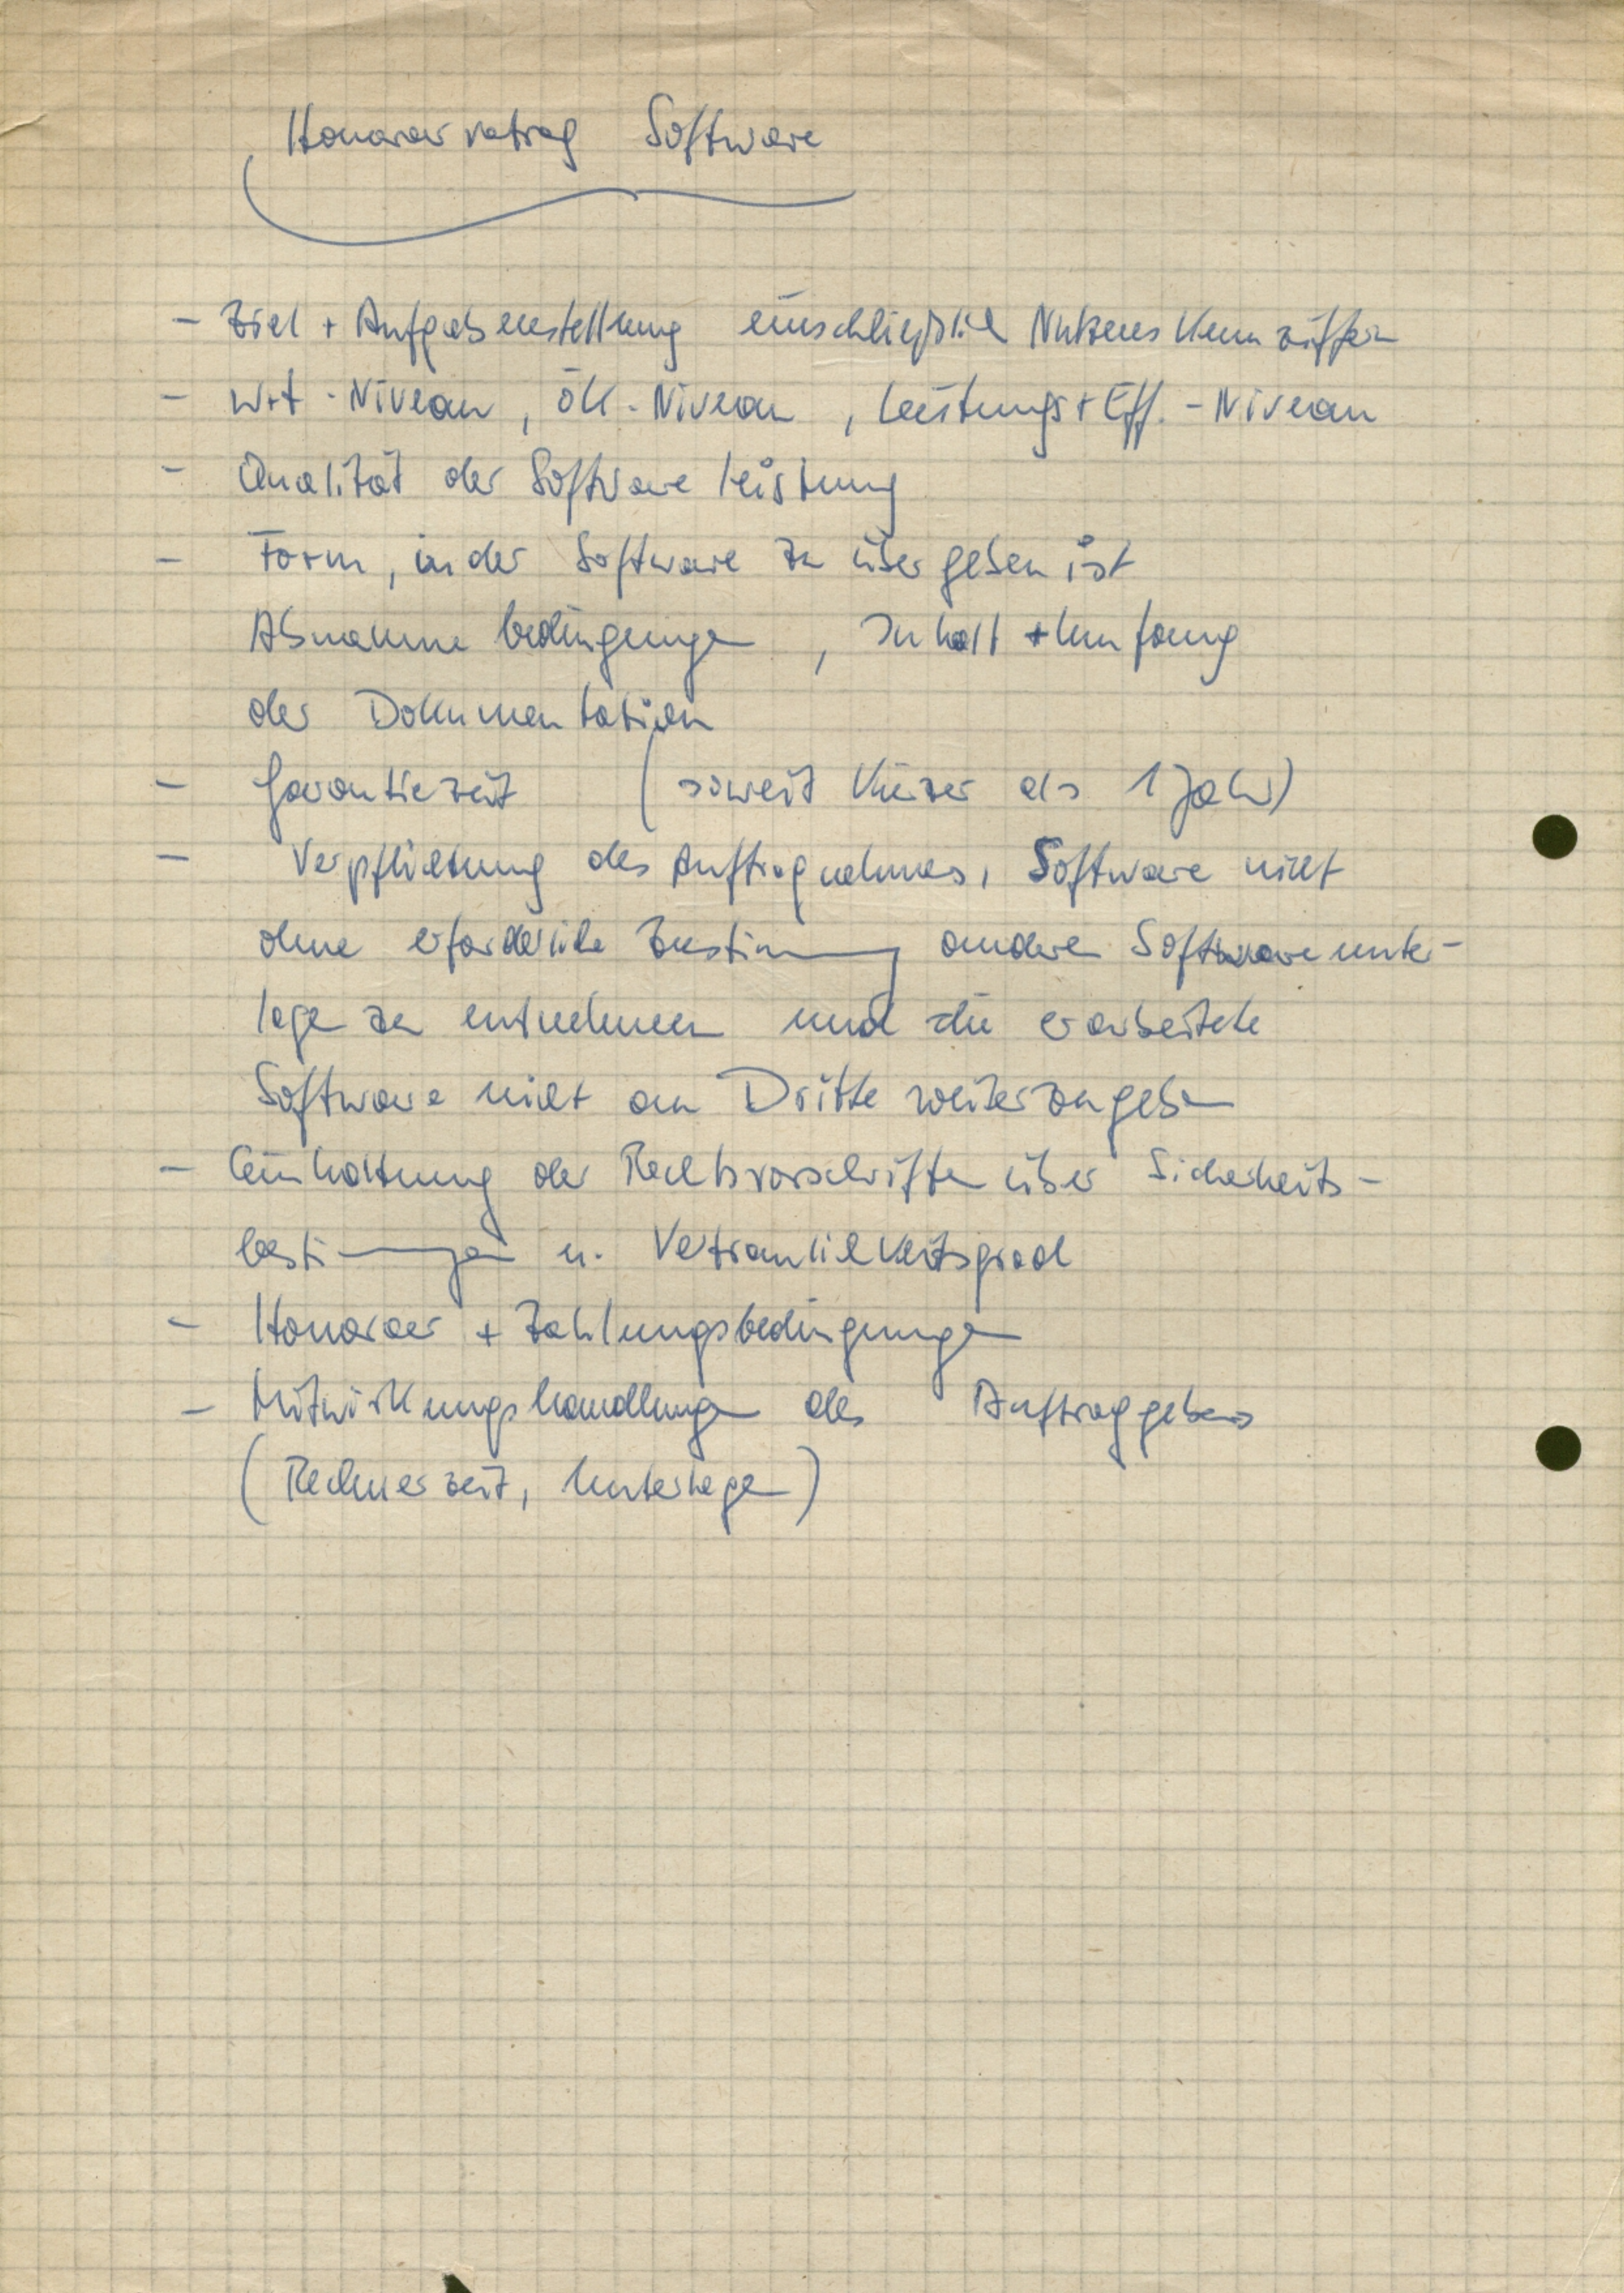 Honorarvertrag Software
- Ziel + Aufgabenstellung einschließlich Nutzenskennziffern
- w+t - Niveau, ök. Niveau, Leistungs + Eff. - Niveau
- Qualität der Softwareleistung
- Form, in der Software zu übergeben ist
Abnahmebedingungen, Inhalt + Umfang
der Dokumentation
- Garantiezeit (soweit kürzer als 1 Jahr)
- Verpflichtung des Auftragnehmers, Software nicht
ohne erforderliche Zustimmung anderen Softwareunter-
lagen zu entnehmen und die erarbeitete
Software nicht an Dritte weiterzugeben
- Einhaltung der Rechtsvorschriften über Sicherheits-
bestimmungen u. Vertraulichkeitsgrad
- Honorar + Zahlungsbedingungen
- Mitwirkungshandlungen des Auftraggebers
(Rechnerzeit, Unterlagen)